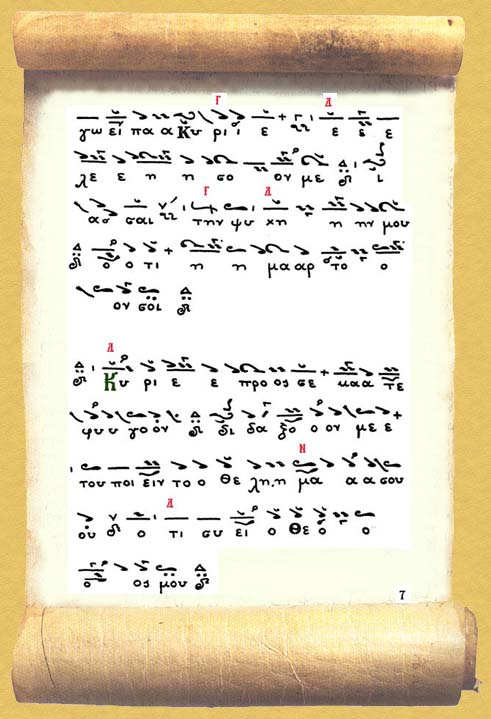 Γ Δ
γω εί πα α Κυ ρι ί ε ε ε ε
λε ε η η σο ον με ι
Γ Δ
ασ σαι την ψυ χη η ην μου
ο ο τι η η μα αρ το ο
ον σοι
Δ
Κυ ρι ε ε προ ος σε κα α τε
φυ υ γο ον δι δα ξο ο ον με ε
Ν
του ποι ειν το ο θε λη η μα α α σου
Δ
ου ο τι συ ει ο Θε ο ο
ο ος μου
7